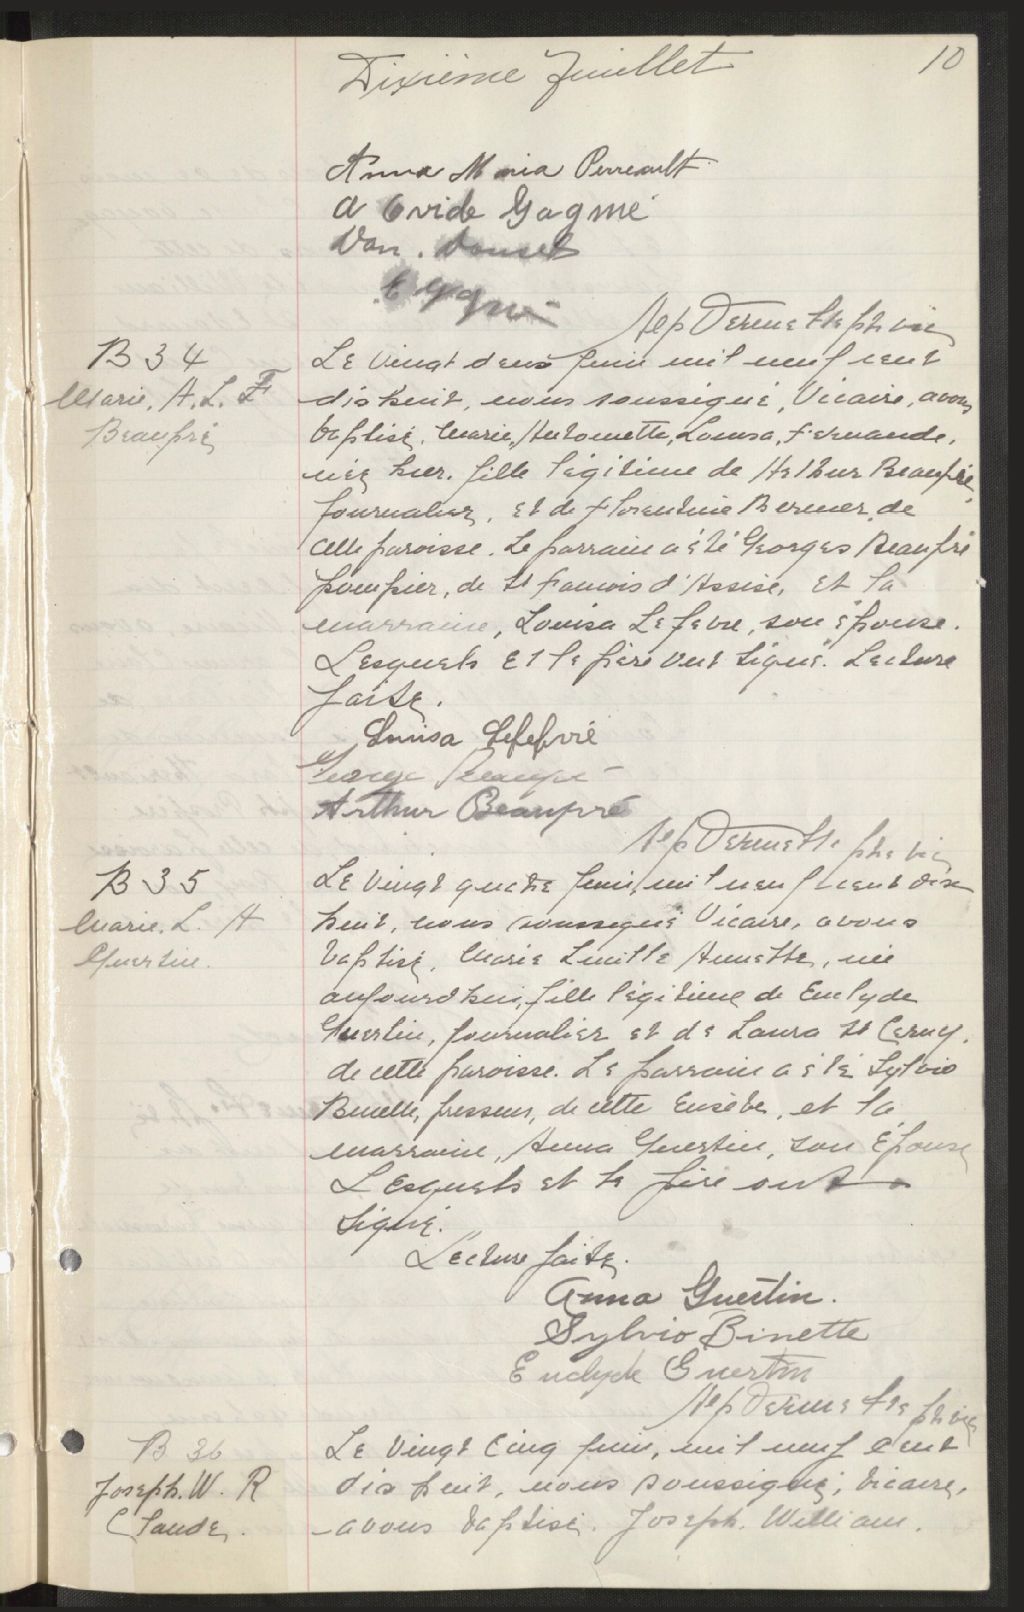 Dixième feuillet
10
Anna Maria Perreault
A Ovide Gagné
Gagné
Nap Vermette ptre vic
B 34
Marie, A. L. F
Beaupré
Le vingt deux juin mil neuf cent
dix huit, nous soussigné, Vicaire, avons
baptisé, Marie, Antoinette, Louisa, Fernande,
née hier. fille légitime de Arthur Beaupré,
journalier, et de Florentine Bernier, de
cette paroisse. Le parrain a été Georges Beaupré
pompier, de St François d'Assise, et la
marraine, Louisa Lefevre, son épouse.
Lesquels et le père ont signé. Lecture
faite.
Louisa Lefebvre
George Beaupré
Arthur Beaupré
Nap Vermette ptre vic
B 35
Marie. L. A
Guertin.
Le vingt quatre juin, mil neuf cent dix
huit, nous soussigné Vicaire, avons
baptisé, Marie Lucille Annette, née
aujourd'hui, fille légitime de Euclyde
Guertin, journalier et de Laura St Cerny,
de cette paroisse. Le parrain a été Sylvio
Binette, presseur, de cette Eusèbe, et la
marraine, Anna Guertin, son épouse
Lesquels et le père ont
signé.
Lecture faite.
Anna Guertin.
Sylvio Binette
Euclyde Guertin
Nap Vermette ptre vic
B 36
Joseph. W. R
Claude.
Le vingt cinq juin, mil neuf cent
dix huit, nous soussigné, vicaire,
avons baptisé. Joseph. William.